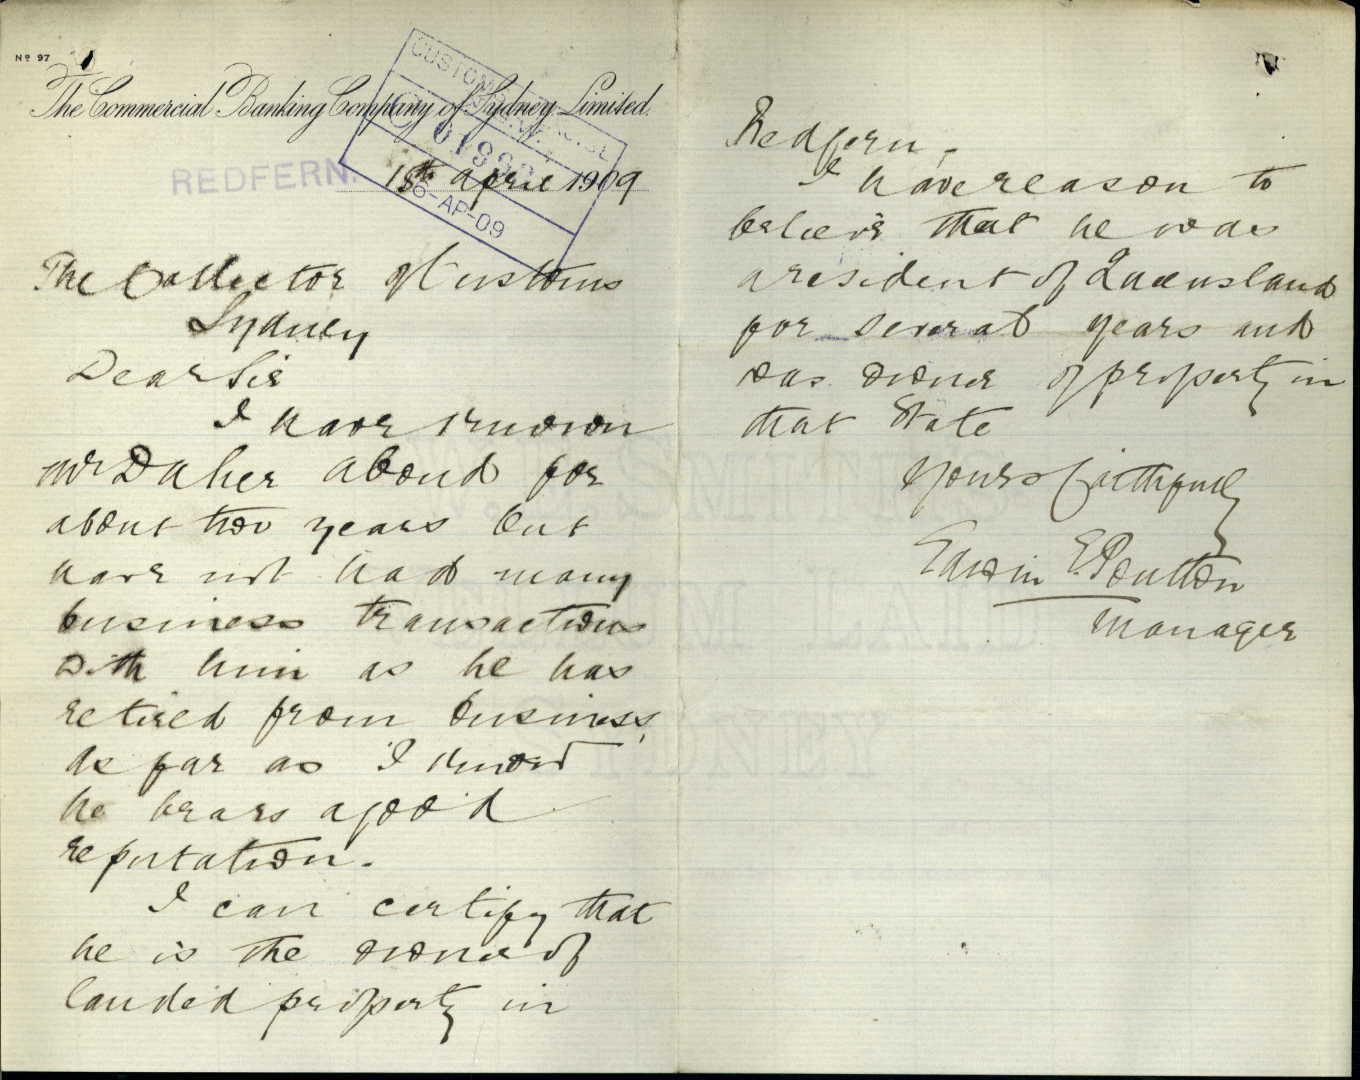 No 97
The Commercial Banking Company of Sydney Limited.
REDFERN.
15th April 1909
6-AP-09
The Collector of Customs
Sydney
Dear Sir
I have known
Mr Daher Aboud for
about two years but
have not had many
business transactions
with him as he has
retired from business,
As far as I know
he bears a good
reputation.
I can certify that
he is the owner of
landed property in
Redfern.
I have reason to
believe that he was
a resident of Queensland
for several years and
was owner of property in
that State
Yours faithfully
Edwin E. Poulton
Manager
W. E. SMITH'S
LAID
SYDNEY